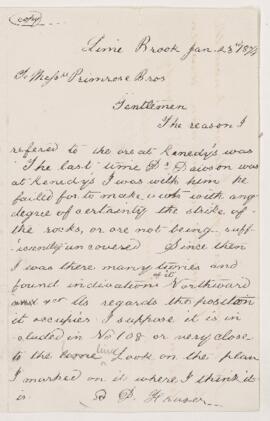 (copy)
Lime Brook Jan. 23rd 187
To Messrs Primrose Bros
Gentlemen
The reason I
refered to the ore at Kenedy's was
The last time Dr Dawson was
at Kenedys I was with him he
failed for to make out with any
degree of certainty the strike of
the rocks, or ore not being suff-
iciently uncovered Since then
I was there many times and
found indications of it Northward
As regards the position
it occupies I suppose it is in
cluded in No 108 or very close
to the line Look on the plan
I marked on it where I think it
is D. Fraser